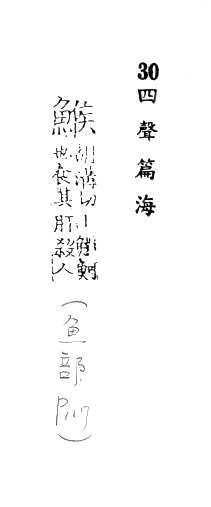 30四聲篇海
鯸胡溝切丨魺
也食其肝殺人
(魚部P117)